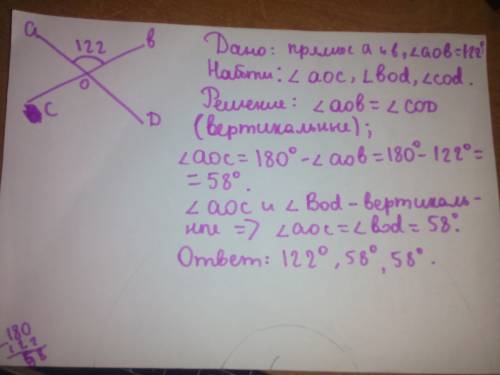 a
122
b
O
C
D
Дано: прямые a и b, ∠aob=122°
Найти: ∠aoc, ∠bod, ∠cod.
Решение: ∠aob = ∠cod
(вертикальные);
∠aoc = 180° - ∠aob = 180° - 122° =
= 58°.
∠aoc и ∠bod - вертикаль-
ные => ∠aoc = ∠bod = 58°.
Ответ: 122°, 58°, 58°.
180
- 122
58